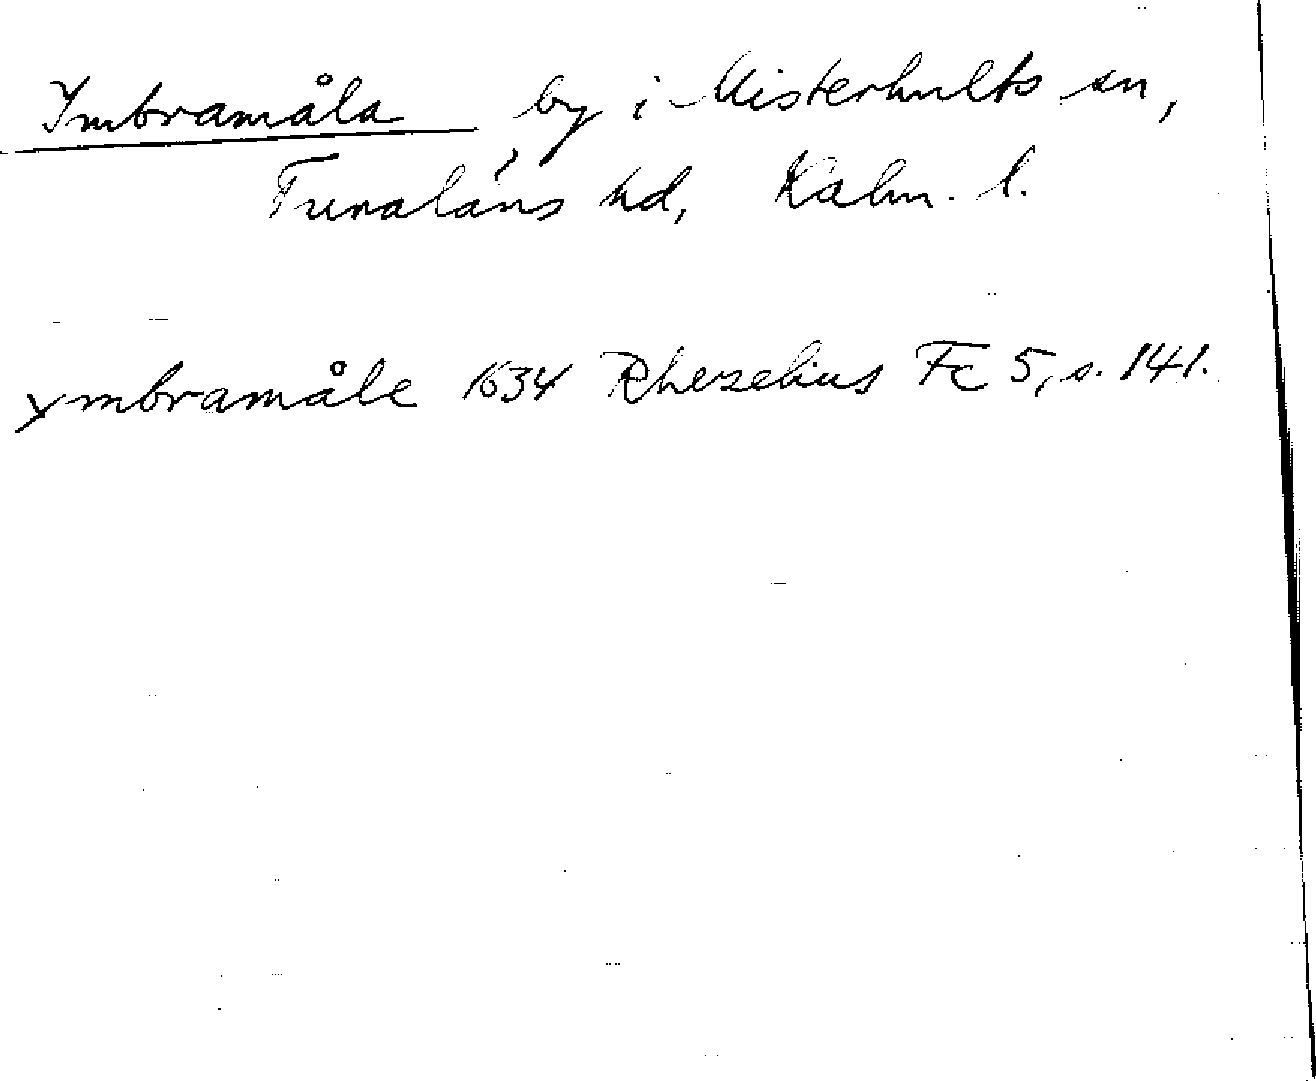 Ymbramåla by i Misterhults sn,
Tunaläns hd, Kalm. l.
ymbramåle 1634 Rhezelius Fc 5, s. 141.